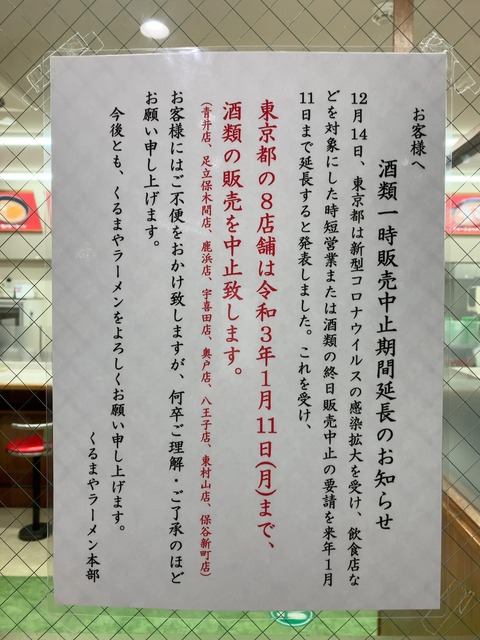 お客様へ
酒類一時販売中止期間延長のお知らせ
12月14日、東京都は新型コロナウイルスの感染拡大を受け、飲食店な
どを対象にした時短営業または酒類の終日販売中止の要請を来年1月
11日まで延長すると発表しました。これを受け、
東京都の8店舗は令和3年1月11日(月)まで、
酒類の販売を中止致します。
(青井店、足立保木間店、鹿浜店、宇喜田店、奥戸店、八王子店、東村山店、保谷新町店)
お客様にはご不便をおかけ致しますが、何卒ご理解・ご了承のほど
お願い申し上げます。
今後とも、くるまやラーメンをよろしくお願い申し上げます。
くるまやラーメン本部